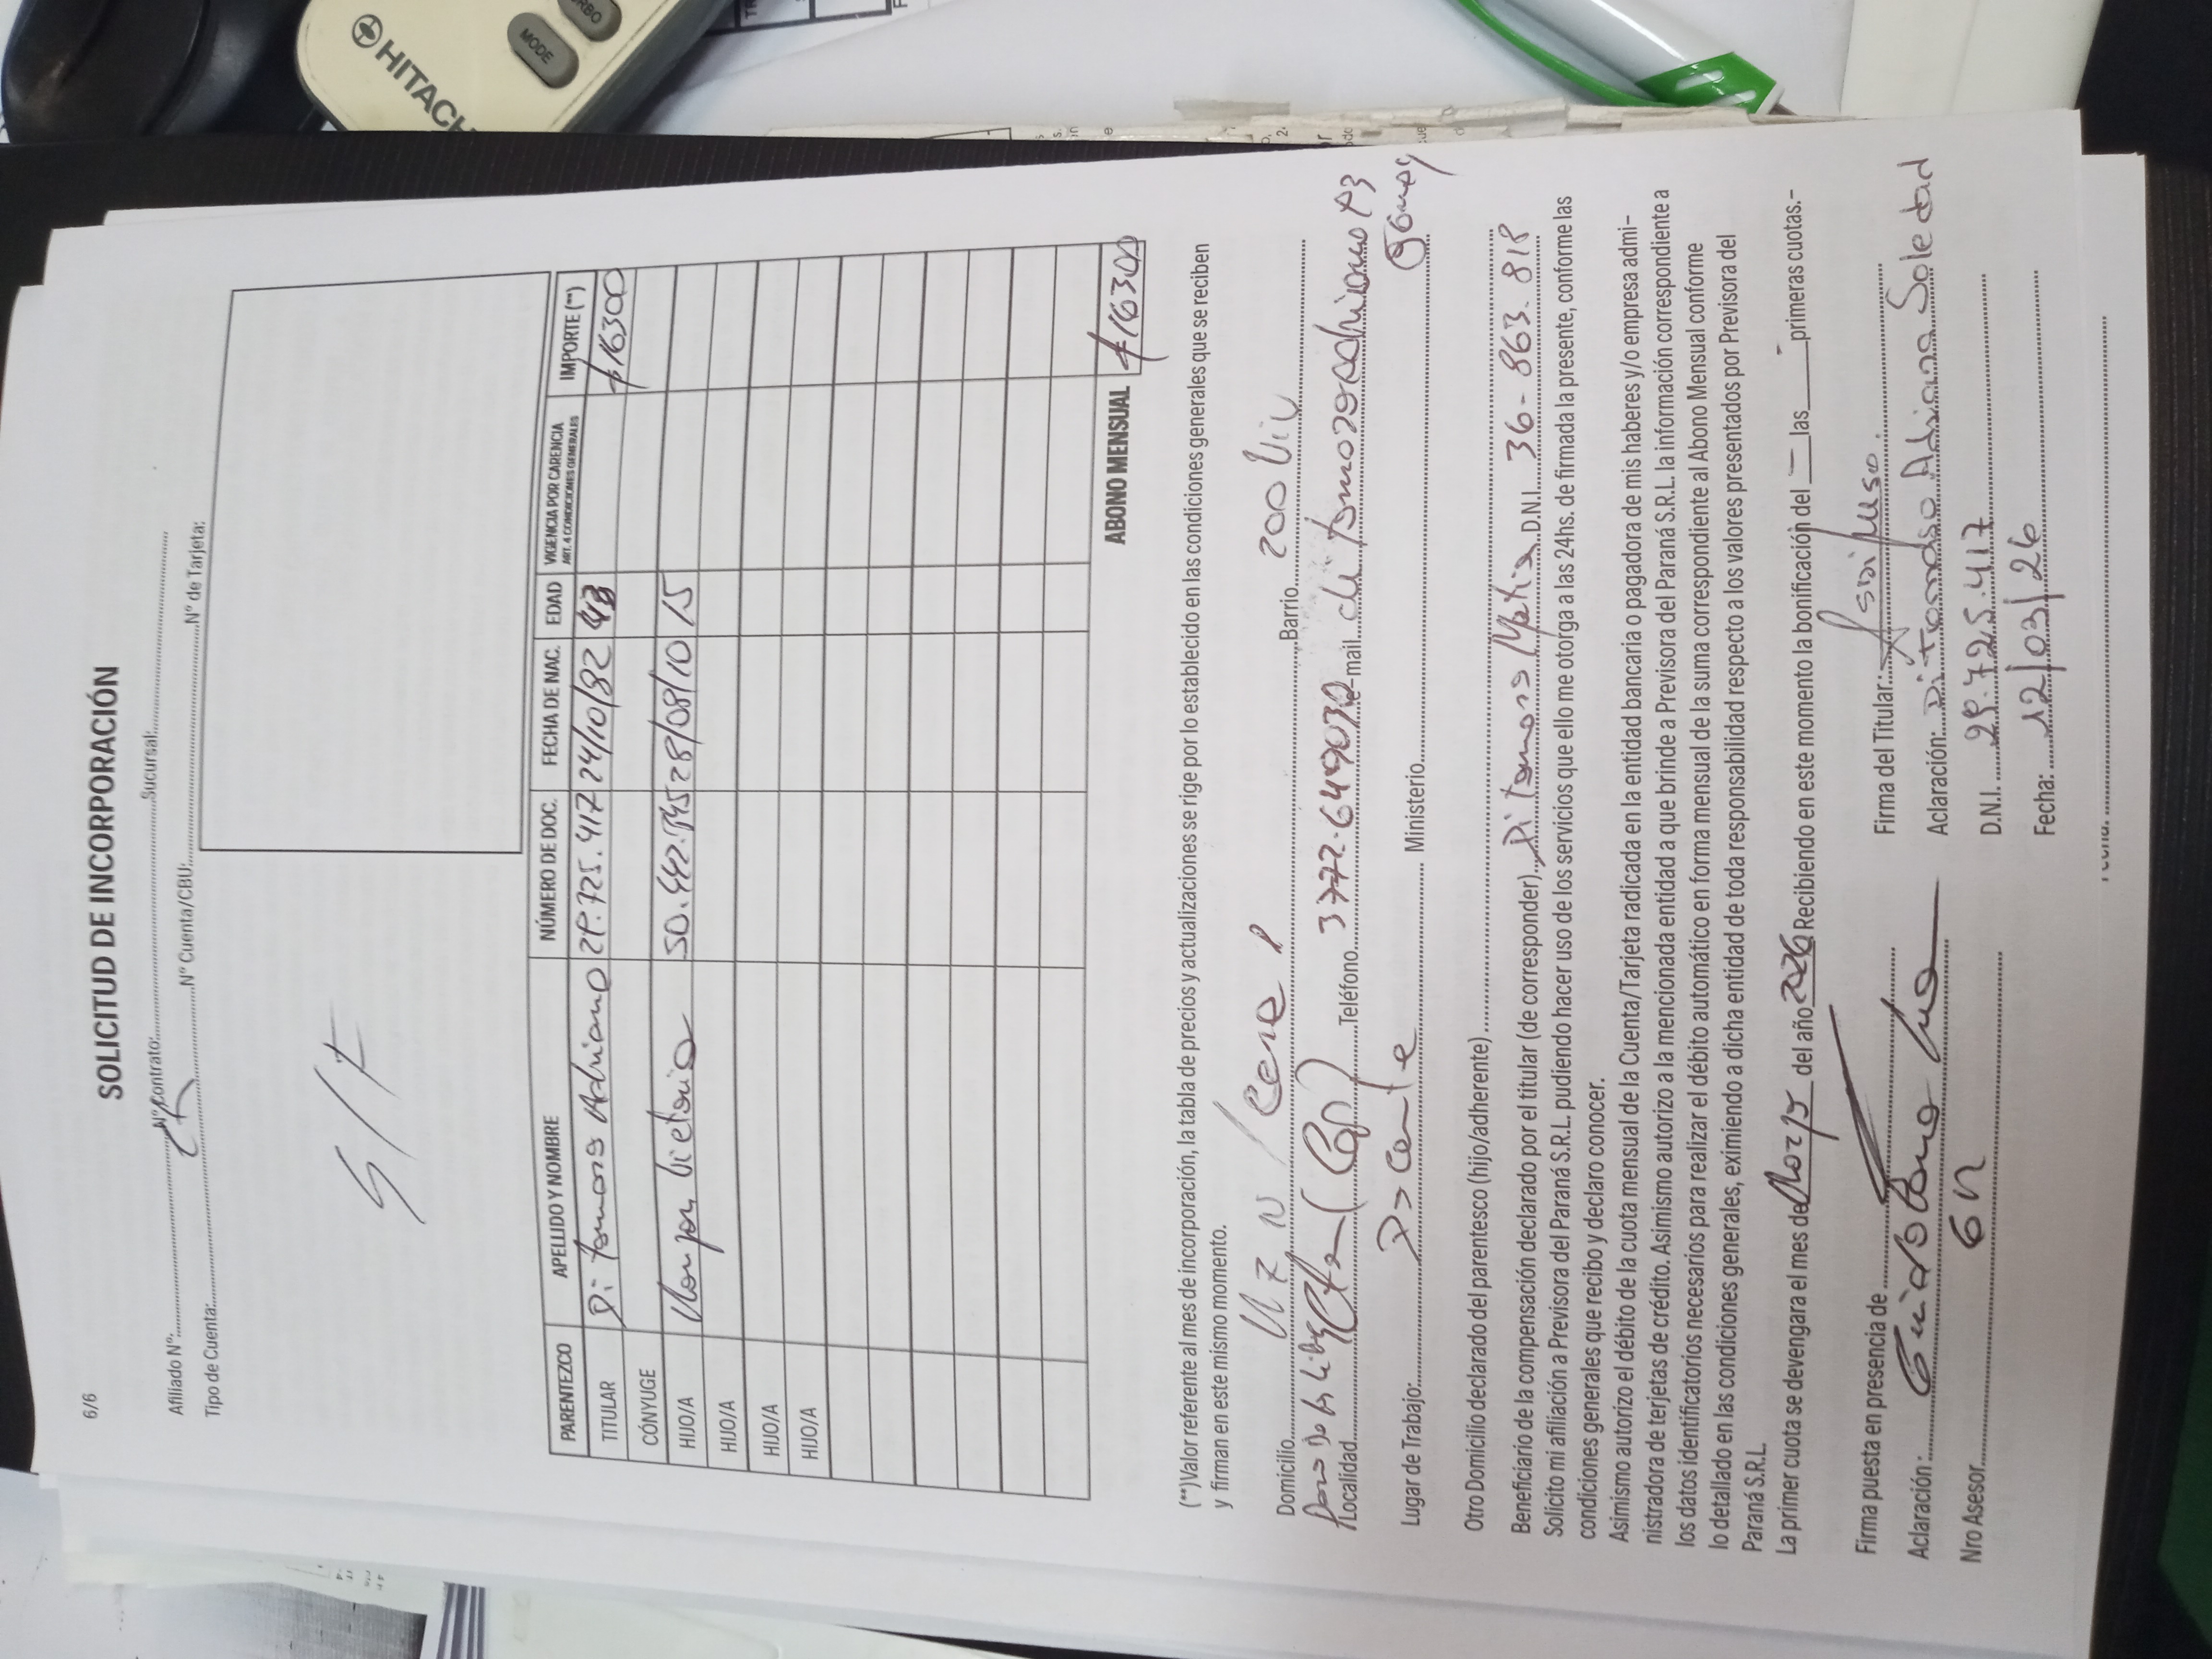 HITACH
MODE
RBO
6/6
SOLICITUD DE INCORPORACIÓN
Afiliado Nº: Nº Contrato: Sucursal:
Tipo de Cuenta: Nº Cuenta/CBU: Nº de Tarjeta:
PARENTEZCO APELLIDO Y NOMBRE NÚMERO DE DOC. FECHA DE NAC. EDAD VIGENCIA POR CARENCIA ART. 4 CONDICIONES GENERALES IMPORTE (**)
TITULAR Di Tomaso Adriana 29.725.417 24/10/82 43 $16300
CÓNYUGE
HIJO/A Victoria 28/08/10 15
HIJO/A
HIJO/A
HIJO/A
ABONO MENSUAL $16300
(**)Valor referente al mes de incorporación, la tabla de precios y actualizaciones se rige por lo establecido en las condiciones generales que se reciben
y firman en este mismo momento.
Domicilio Mz N / Casa Barrio 200 Viv
Localidad Paso de los Libres Teléfono e-mail
Lugar de Trabajo: Ministerio
Otro Domicilio declarado del parentesco (hijo/adherente)
Beneficiario de la compensación declarado por el titular (de corresponder) Di Tomaso Matias D.N.I. 36-863.818
Solicito mi afiliación a Previsora del Paraná S.R.L, pudiendo hacer uso de los servicios que ello me otorga a las 24hs. de firmada la presente, conforme las
condiciones generales que recibo y declaro conocer.
Asimismo autorizo el débito de la cuota mensual de la Cuenta/Tarjeta radicada en la entidad bancaria o pagadora de mis haberes y/o empresa admi-
nistradora de terjetas de crédito. Asimismo autorizo a la mencionada entidad a que brinde a Previsora del Paraná S.R.L. la información correspondiente a
los datos identificatorios necesarios para realizar el débito automático en forma mensual de la suma correspondiente al Abono Mensual conforme
lo detallado en las condiciones generales, eximiendo a dicha entidad de toda responsabilidad respecto a los valores presentados por Previsora del
Paraná S.R.L.
La primer cuota se devengara el mes de Marzo del año 2026 Recibiendo en este momento la bonificación del — las - primeras cuotas.-
Firma puesta en presencia de Firma del Titular:
Aclaración: Aclaración: Di Tomaso Adriana Soledad
Nro Asesor D.N.I. 29.725.417
Fecha: 12/03/26